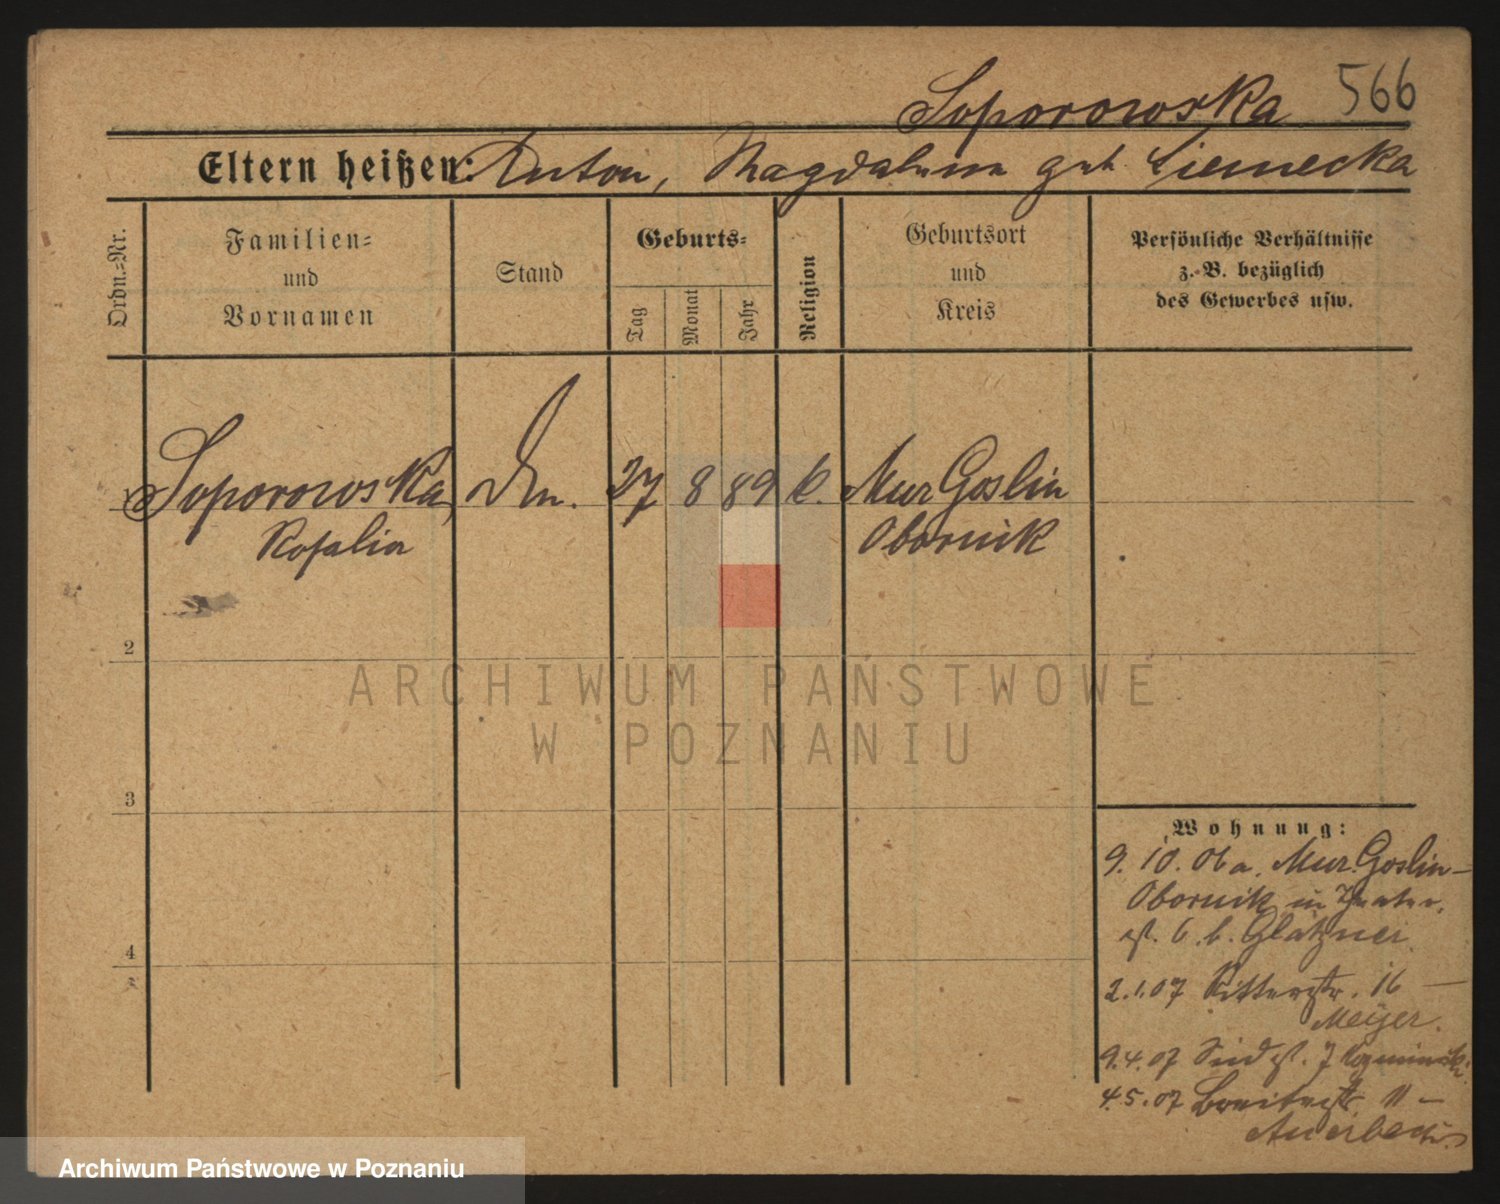 Soporowska 566
Eltern heißen: Anton, Magdalena geb. Siemecka
Ordn.=Nr.
Familien=
und
Vornamen
Stand
Geburts=
Tag
Monat
Jahr
Religion
Geburtsort
und
Kreis
Persönliche Verhältnisse
z. B. bezüglich
des Gewerbes usw.
1 Soporowska, 27 8 89 k. Mur Goslin
Rosalia Obornik
2
3
4
Wohnung:
9. 10. 06 a. Mur. Goslin-
Obornik in Theater-
st. 6. b. Glatzner
2.1.07 Ritterstr. 16 —
Meyer.
9.4.07 st. 7
4.5.07 Breitestr. 11 —
Auerbach
ARCHIWUM PAŃSTWOWE
W POZNANIU
Archiwum Państwowe w Poznaniu